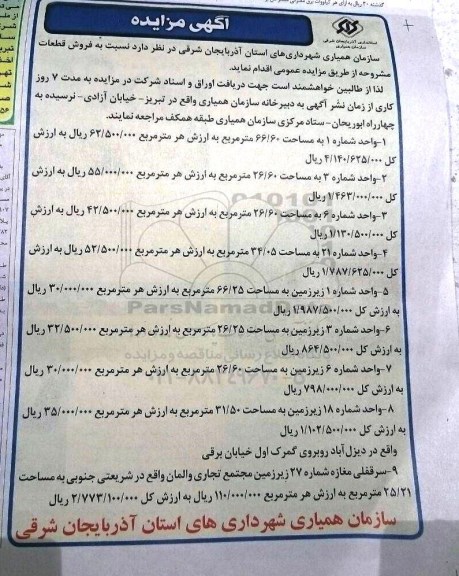 آگهی مزایده
استانداری آذربایجان شرقی
سازمان همیاری
سازمان همیاری شهرداری‌های استان آذربایجان شرقی در نظر دارد نسبت به فروش قطعات
مشروحه از طریق مزایده عمومی اقدام نماید.
لذا از طالبین خواهشمند است جهت دریافت اوراق و اسناد شرکت در مزایده به مدت ۷ روز
کاری از زمان نشر آگهی به دبیرخانه سازمان همیاری واقع در تبریز- خیابان آزادی- نرسیده به
چهارراه ابوریحان- ستاد مرکزی سازمان همیاری طبقه همکف مراجعه نمایند.
۱-واحد شماره ۱ به مساحت ۶۶/۶۰ مترمربع به ارزش هر مترمربع ۶۲/۵۰۰/۰۰۰ ریال به ارزش
کل ۴/۱۴۰/۶۲۵/۰۰۰ ریال
۲-واحد شماره ۳ به مساحت ۲۶/۶۰ مترمربع به ارزش هر مترمربع ۵۵/۰۰۰/۰۰۰ ریال به ارزش
کل ۱/۴۶۳/۰۰۰/۰۰۰ ریال
۳-واحد شماره ۶ به مساحت ۲۶/۶۰ مترمربع به ارزش هر مترمربع ۴۲/۵۰۰/۰۰۰ ریال به ارزش
کل ۱/۱۳۰/۵۰۰/۰۰۰ ریال
۴-واحد شماره ۲۱ به مساحت ۳۴/۰۵ مترمربع به ارزش هر مترمربع ۵۲/۵۰۰/۰۰۰ ریال به ارزش
کل ۱/۷۸۷/۶۲۵/۰۰۰ ریال
۵-واحد شماره ۱ زیرزمین به مساحت ۶۶/۲۵ مترمربع به ارزش هر مترمربع ۳۰/۰۰۰/۰۰۰ ریال
به ارزش کل ۱/۹۸۷/۵۰۰/۰۰۰ ریال
ParsNamad
۶-واحد شماره ۳ زیرزمین به مساحت ۲۶/۲۵ مترمربع به ارزش هر مترمربع ۳۲/۵۰۰/۰۰۰ ریال
به ارزش کل ۸۶۴/۵۰۰/۰۰۰ ریال
۷-واحد شماره ۶ زیرزمین به مساحت ۲۶/۶۰ مترمربع به ارزش هر مترمربع ۳۰/۰۰۰/۰۰۰ ریال
به ارزش کل ۷۹۸/۰۰۰/۰۰۰ ریال
۸-واحد شماره ۱۸ زیرزمین به مساحت ۳۱/۵۰ مترمربع به ارزش هر مترمربع ۳۵/۰۰۰/۰۰۰ ریال
به ارزش کل ۱/۱۰۲/۵۰۰/۰۰۰ ریال
واقع در دیزل‌آباد روبروی گمرک اول خیابان برقی
۹-سرقفلی مغازه شماره ۲۷ زیرزمین مجتمع تجاری والمان واقع در شریعتی جنوبی به مساحت
۲۵/۲۱ مترمربع به ارزش هر مترمربع ۱۱۰/۰۰۰/۰۰۰ ریال به ارزش کل ۲/۷۷۳/۱۰۰/۰۰۰ ریال
سازمان همیاری شهرداری های استان آذربایجان شرقی